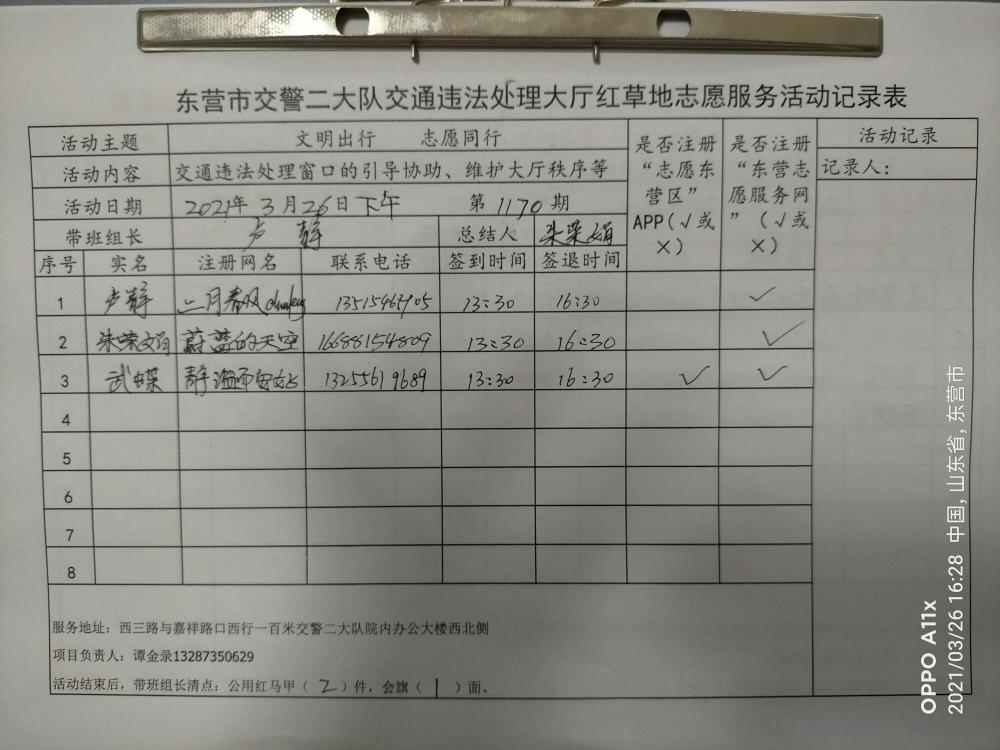 东营市交警二大队交通违法处理大厅红草地志愿服务活动记录表
活动主题 文明出行 志愿同行 是否注册“志愿东营区”APP(√或×) 是否注册“东营志愿服务网”(√或×) 活动记录
活动内容 交通违法处理窗口的引导协助、维护大厅秩序等 记录人:
活动日期 2021年3月26日下午 第1170期
带班组长 卢静 总结人 朱荣娟
序号 实名 注册网名 联系电话 签到时间 签退时间
1 卢静 二月春风 13:30 16:30 √
2 朱荣娟 蔚蓝的天空 16688154809 13:30 16:30 √
3 武蝶 13255619689 13:30 16:30 √ √
4
5
6
7
8
服务地址:西三路与嘉祥路口西行一百米交警二大队院内办公大楼西北侧
项目负责人:谭金录13287350629
活动结束后,带班组长清点:公用红马甲(2)件,会旗(1)面。
OPPO A11x
2021/03/26 16:28 中国,山东省,东营市